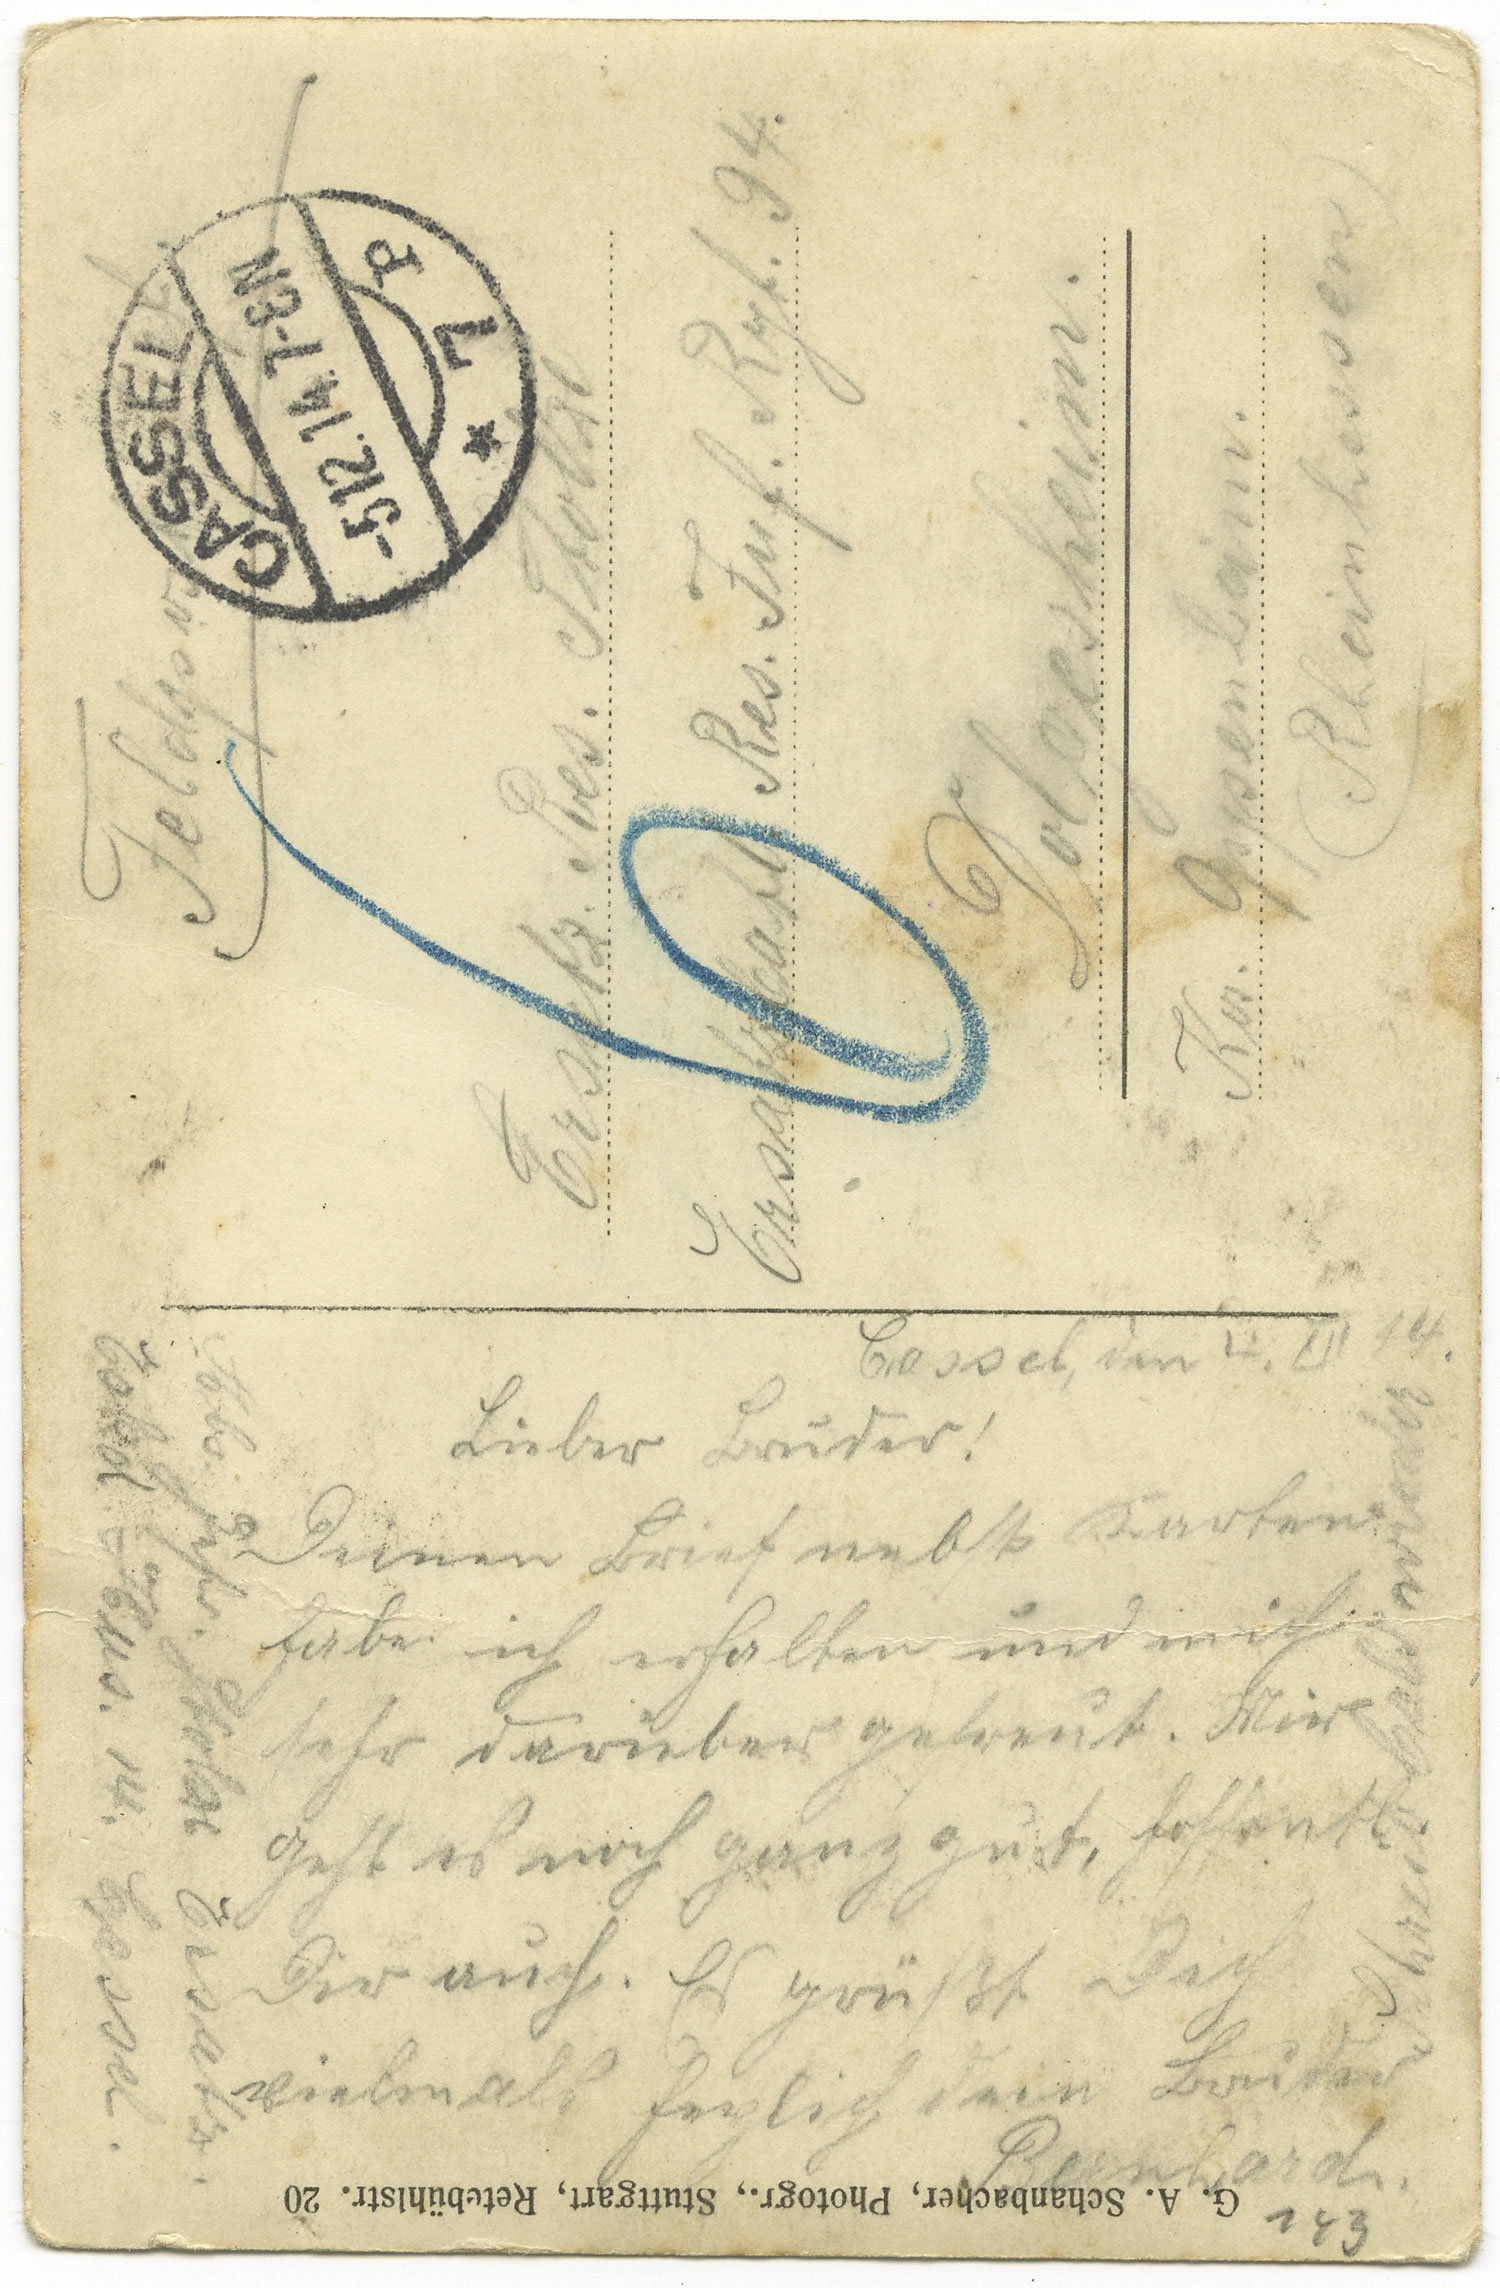 Feldpost
CASSEL
-5.12.14.7-8N
Ersatz. Res.
Ersatzbatl. Res. Inf. Rgt. 94.
Dolgesheim.
Kr. Oppenheim.
(Rheinhessen)
Cassel, den
14.
Lieber Bruder!
Deinen Brief nebst Karten
habe ich erhalten und mich
sehr darüber gefreut. Mir
geht es noch ganz gut, hoffentl.
Dir auch. Es grüßt Dich
vielmals herzlich dein Bruder
Bernhard.
Schreib bald wieder
Ersatz
14. Cassel.
G. A. Schanbacher, Photogr., Stuttgart, Rotebühlstr. 20
143